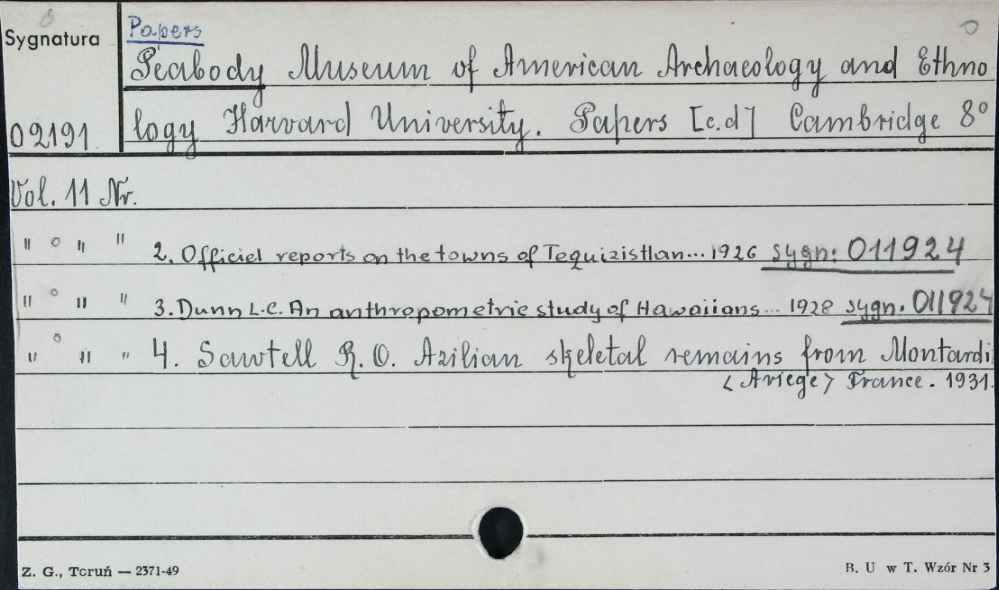 Papers
Sygnatura
Peabody Museum of American Archaeology and Ethno
logy Harvard University. Papers [c.d] Cambridge 8°
02191.
Vol. 11 Nr.
" " " 2. Officiel reports on the towns of Tequizistlan... 1926 sygn: 011924
" " " 3. Dunn L.C. An anthropometric study of Hawaiians... 1928 sygn. 011924
" " " 4. Sawtell R. O. Azilian skeletal remains from Montardi
<Ariege> France. 1931.
Z. G., Toruń — 2371-49
B. U w T. Wzór Nr 3